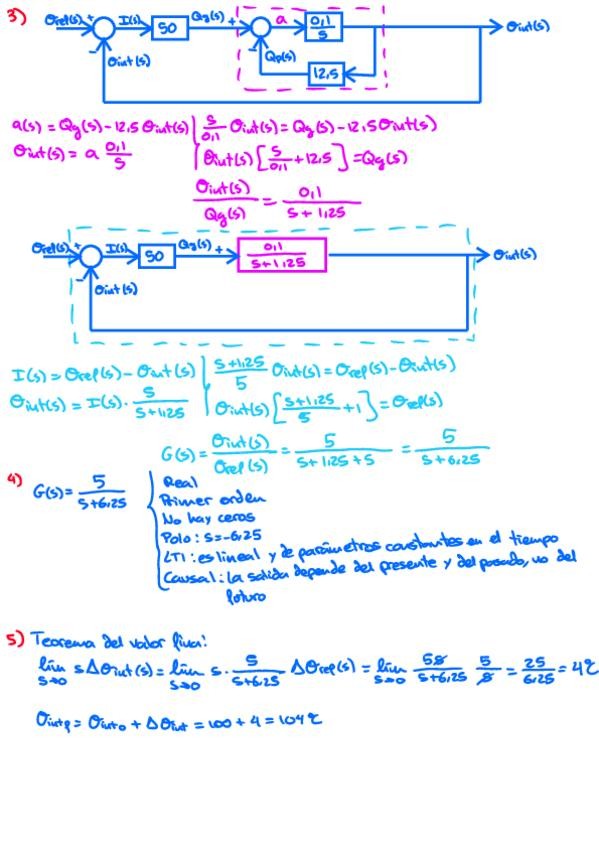 3)
θref(s) + I(s) 50 Qg(s) + a 0,1/s θint(s)
- θint(s) - Qp(s) 12,5
a(s) = Qg(s) - 12,5 θint(s) | s/0,1 θint(s) = Qg(s) - 12,5 θint(s)
θint(s) = a 0,1/s | θint(s) [s/0,1 + 12,5] = Qg(s)
θint(s)/Qg(s) = 0,1/(s + 1,25)
θref(s) + I(s) 50 Qg(s) + 0,1/(s+1,25) θint(s)
- θint(s)
I(s) = θref(s) - θint(s) | (s+1,25)/5 θint(s) = θref(s) - θint(s)
θint(s) = I(s) · 5/(s+1,25) | θint(s) [(s+1,25)/5 + 1] = θref(s)
G(s) = θint(s)/θref(s) = 5/(s+1,25+5) = 5/(s+6,25)
4) G(s) = 5/(s+6,25)
Real
Primer orden
No hay ceros
Polo: s=-6,25
LTI: es lineal y de parámetros constantes en el tiempo
Causal: la salida depende del presente y del pasado, no del
futuro
5) Teorema del valor final:
lim s→0 s Δθint(s) = lim s→0 s · 5/(s+6,25) Δθref(s) = lim s→0 5s/(s+6,25) 5/s = 25/6,25 = 4℃
θintf = θint0 + Δθint = 100 + 4 = 104℃